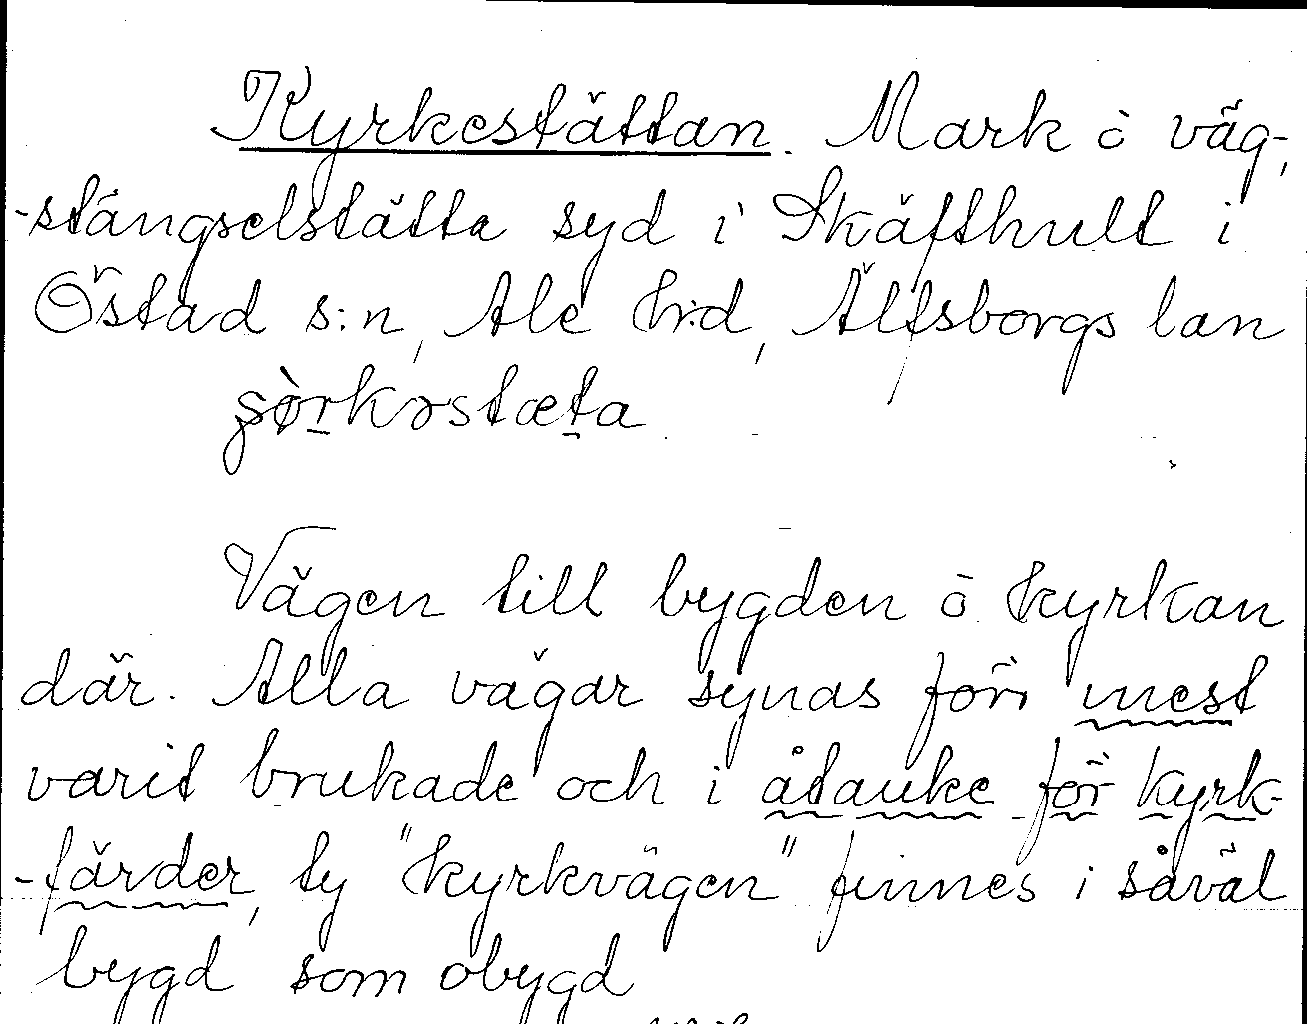 Kyrkestättan. Mark ò väg-
-stängselstätta syd i Skäfthult i
Östad s:n, Ale h:d, Älfsborgs län
Vägen till bygden ò kyrkan
där. Alla vägar synas förr mest
varit brukade och i åtanke för kyrk-
-färder, ty "kyrkvägen" finnes i såväl
bygd som obygd